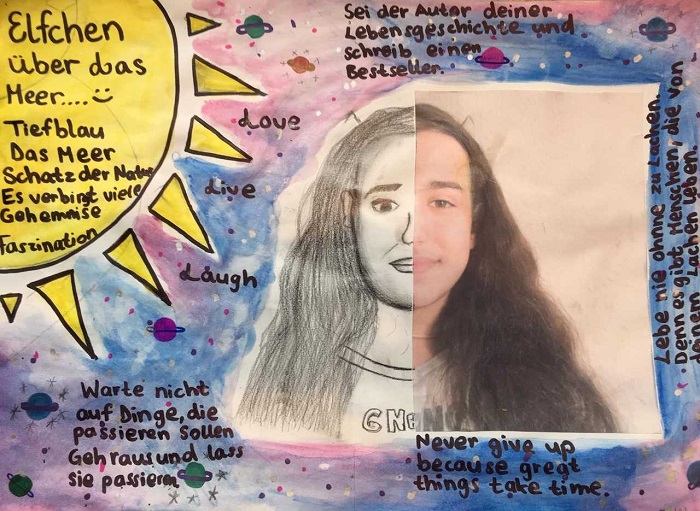 Elfchen
über das
Meer....
Tiefblau
Das Meer
Schatz der Natur
Es verbirgt viele
Geheimnise
Faszination
Love
Live
Laugh
Sei der Autor deiner
Lebensgeschichte und
schreib einen
Bestseller.
Lebe nie ohne zu Lachen.
Denn es gibt Menschen, die von
Lachen leben.
Warte nicht
auf Dinge, die
passieren sollen
Geh raus und lass
sie passieren
Never give up
because great
things take time.